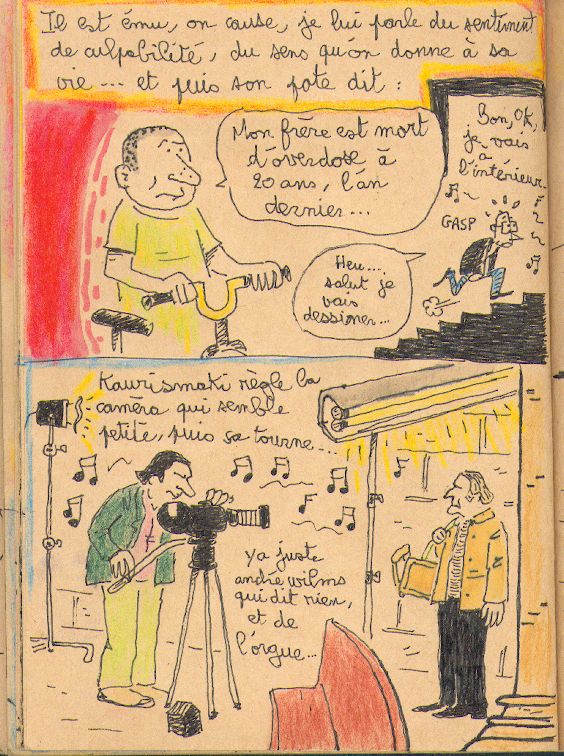 Il est ému, on cause, je lui parle du sentiment
de culpabilité, du sens qu'on donne à sa
vie... et puis son pote dit :
Mon frère est mort
d'overdose à
20 ans, l'an
dernier...
Heu...
salut je
vais
dessiner...
Bon, OK,
je vais
à
l'intérieur.
GASP
Kaurismaki règle la
caméra qui semble
petite, puis ça tourne...
ya juste
andré wilms
qui dit rien,
et de
l'orgue...